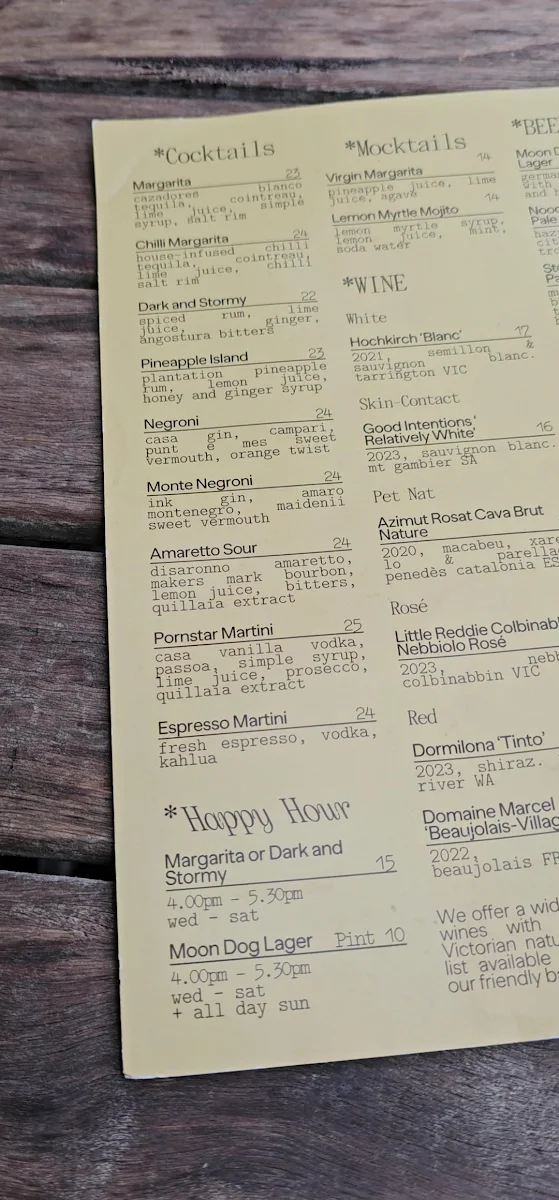 *Cocktails
Margarita 23
cazadores blanco
tequila, cointreau,
lime juice, simple
syrup, salt rim
Chilli Margarita 24
house-infused chilli
tequila, cointreau,
lime juice, chilli
salt rim
Dark and Stormy 22
spiced rum, lime
juice, ginger,
angostura bitters
Pineapple Island 23
plantation pineapple
rum, lemon juice,
honey and ginger syrup
Negroni 24
casa gin, campari,
punt e mes sweet
vermouth, orange twist
Monte Negroni 24
ink gin, amaro
montenegro, maidenii
sweet vermouth
Amaretto Sour 24
disaronno amaretto,
makers mark bourbon,
lemon juice, bitters,
quillaia extract
Pornstar Martini 25
casa vanilla vodka,
passoa, simple syrup,
lime juice, prosecco,
quillaia extract
Espresso Martini 24
fresh espresso, vodka,
kahlua
*Happy Hour
Margarita or Dark and
Stormy 15
4.00pm - 5.30pm
wed - sat
Moon Dog Lager Pint 10
4.00pm - 5.30pm
wed - sat
+ all day sun
*Mocktails
Virgin Margarita 14
pineapple juice, lime
juice, agave
Lemon Myrtle Mojito 14
lemon myrtle syrup,
lemon juice, mint,
soda water
*WINE
White
Hochkirch 'Blanc' 12
2021, semillon &
sauvignon blanc.
tarrington VIC
Skin-Contact
Good Intentions'
Relatively White' 16
2023, sauvignon blanc.
mt gambier SA
Pet Nat
Azimut Rosat Cava Brut
Nature
2020, macabeu, xare
lo & parella
penedès catalonia ES
Rosé
Little Reddie Colbinab
Nebbiolo Rosé
2023, nebb
colbinabbin VIC
Red
Dormilona 'Tinto'
2023, shiraz.
river WA
Domaine Marcel
'Beaujolais-Villag
2022,
beaujolais FR
We offer a wid
wines with
Victorian natu
list available
our friendly b
*BEE
Moon D
Lager
germa
with
and h
Nooc
Pale
haz
cit
tro
St
Pa